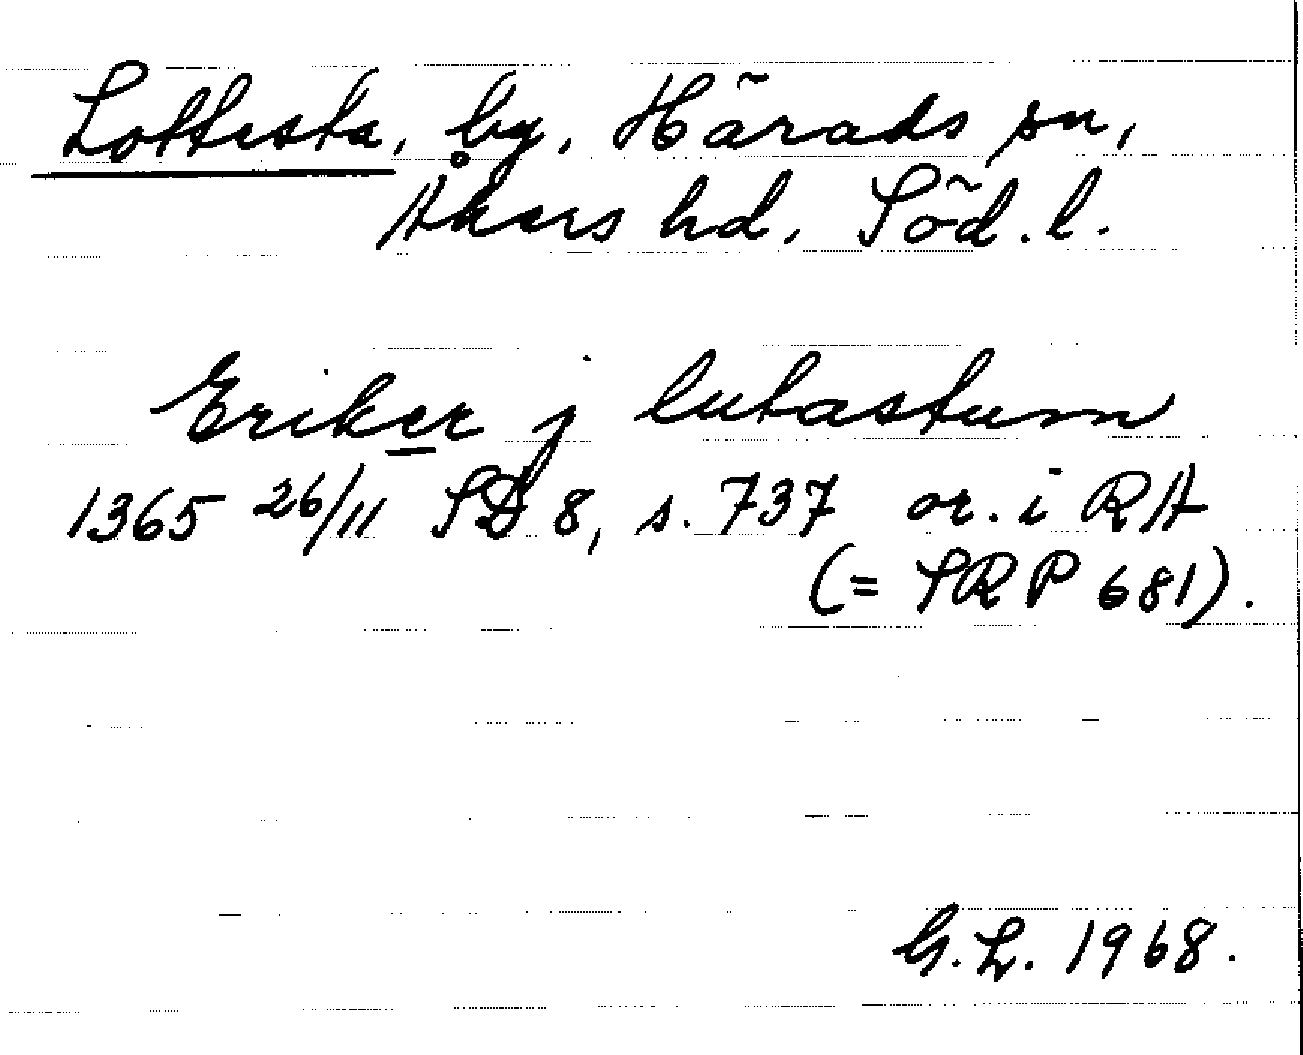 Lottesta, by, Härads sn,
Åkers hd, Söd. l.
Eriker j lutastum
1365 26/11 SD 8, s. 737 or. i RA
(= SRP 681).
G.L. 1968.